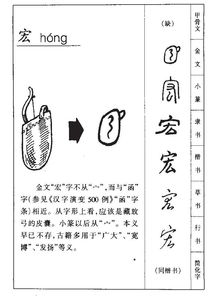 宏 hóng
金文"宏"字不从"宀",而与"函"
字(参见《汉字演变500例》"函"字
条)相近。从字形上看,应该是藏放
弓的皮囊。小篆以后从"宀"。本义
早已不存,古籍多用于"广大"、"宽
博"、"发扬"等义。
(缺)
宏
宏
宏
宏
(同楷书)
甲骨文
金文
小篆
隶书
楷书
草书
行书
简化字